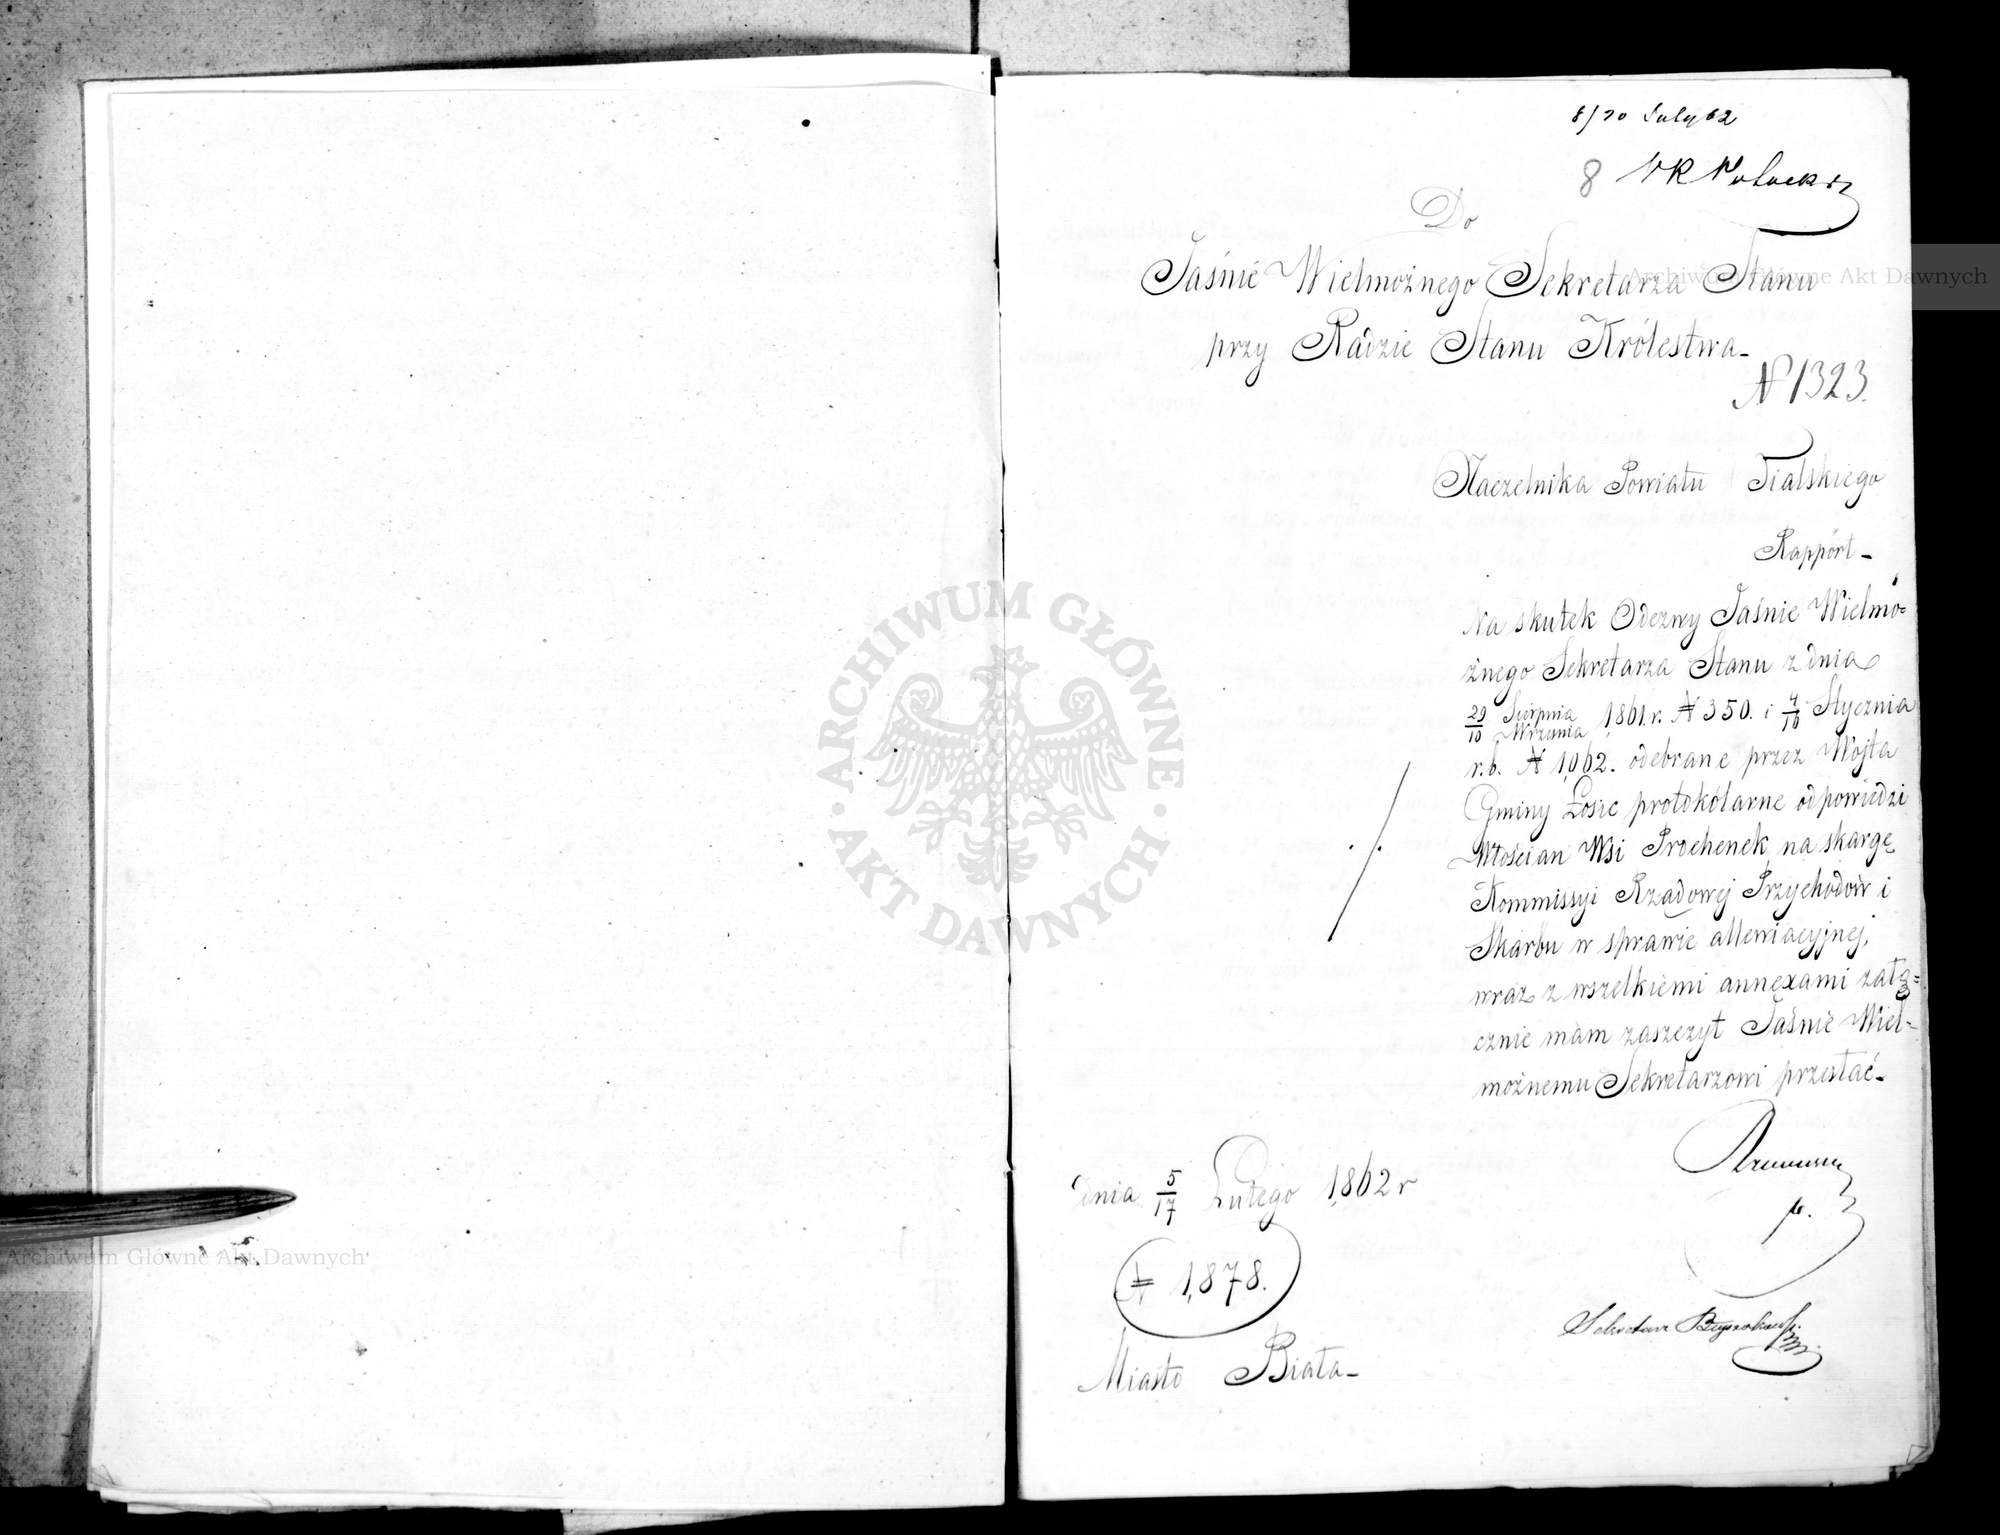 8/20 Luty 62
8
Do
Jaśnie Wielmożnego Sekretarza Stanu
przy Radzie Stanu Królestwa
№ 1323.
Naczelnika Powiatu Bialskiego
Rapport
Na skutek Odezwy Jaśnie Wielmo=
żnego Sekretarza Stanu z dnia
29/10 Sierpnia/Września 1861. r. № 350. i 4/16 Stycznia
r. b. № 1,062. odebrane przez Wójta
Gminy Łosic protokólarne odpowiedzi
Włościan Wsi Prochenek na skargę
Kommissyi Rządowej Przychodów i
Skarbu w sprawie allewiacyjnej,
wraz z wszelkiemi annexami załą=
cznie mam zaszczyt Jaśnie Wiel-
możnemu Sekretarzowi przesłać
dnia 5/17 Lutego 1,862 r
№ 1,878.
Sekretarz
Miasto Biała
Archiwum Główne Akt Dawnych
ARCHIWUM GŁÓWNE
AKT DAWNYCH
Archiwum Główne Akt Dawnych